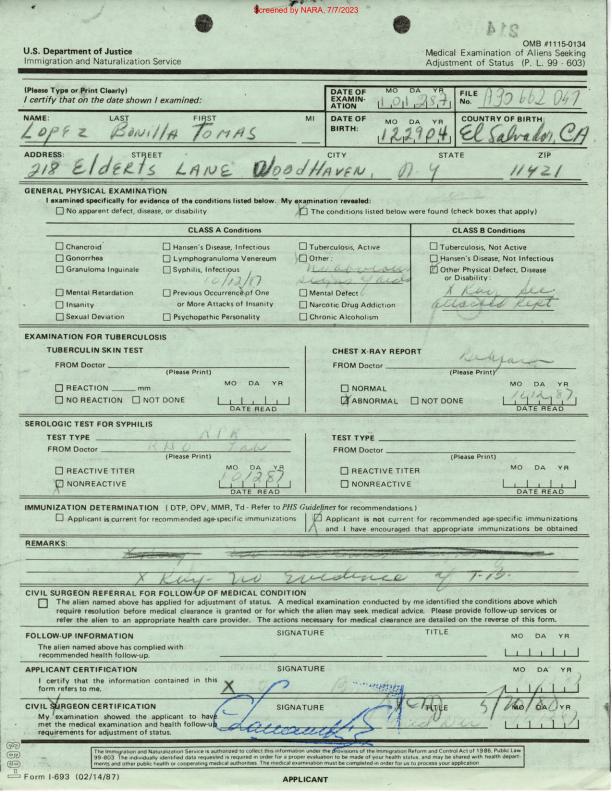 Screened by NARA, 7/7/2023
214
OMB #1115-0134
U.S. Department of Justice
Immigration and Naturalization Service
Medical Examination of Aliens Seeking
Adjustment of Status (P. L. 99 - 603)
(Please Type or Print Clearly)
I certify that on the date shown I examined:
DATE OF EXAMIN-ATION MO DA YR 101287 FILE No. A90 662 047
NAME: LAST FIRST MI
LOPEZ BONILLA TOMAS
DATE OF BIRTH: MO DA YR 122904 COUNTRY OF BIRTH: El Salvador, CA
ADDRESS: STREET CITY STATE ZIP
218 Elderts LANE WoodHaven, N.Y 11421
GENERAL PHYSICAL EXAMINATION
I examined specifically for evidence of the conditions listed below. My examination revealed:
No apparent defect, disease, or disability The conditions listed below were found (check boxes that apply)
CLASS A Conditions CLASS B Conditions
Chancroid Hansen's Disease, Infectious Tuberculosis, Active Tuberculosis, Not Active
Gonorrhea Lymphogranuloma Venereum Other: Hansen's Disease, Not Infectious
Granuloma Inguinale Syphilis, Infectious No obvious Other Physical Defect, Disease
10/12/87 signs of aids or Disability:
Mental Retardation Previous Occurrence of One Mental Defect X Ray See
Insanity or More Attacks of Insanity Narcotic Drug Addiction attached Rept
Sexual Deviation Psychopathic Personality Chronic Alcoholism
EXAMINATION FOR TUBERCULOSIS
TUBERCULIN SKIN TEST CHEST X-RAY REPORT
FROM Doctor FROM Doctor
(Please Print) (Please Print)
REACTION mm MO DA YR NORMAL MO DA YR
NO REACTION NOT DONE ABNORMAL NOT DONE 101287
DATE READ DATE READ
SEROLOGIC TEST FOR SYPHILIS
TEST TYPE RPR TEST TYPE
FROM Doctor Lab FROM Doctor
(Please Print) (Please Print)
REACTIVE TITER MO DA YR REACTIVE TITER MO DA YR
NONREACTIVE 101287 NONREACTIVE
DATE READ DATE READ
IMMUNIZATION DETERMINATION ( DTP, OPV, MMR, Td - Refer to PHS Guidelines for recommendations.)
Applicant is current for recommended age-specific immunizations Applicant is not current for recommended age-specific immunizations
and I have encouraged that appropriate immunizations be obtained
REMARKS:
X Ray - no evidence of T.B.
CIVIL SURGEON REFERRAL FOR FOLLOW-UP OF MEDICAL CONDITION
The alien named above has applied for adjustment of status. A medical examination conducted by me identified the conditions above which
require resolution before medical clearance is granted or for which the alien may seek medical advice. Please provide follow-up services or
refer the alien to an appropriate health care provider. The actions necessary for medical clearance are detailed on the reverse of this form.
FOLLOW-UP INFORMATION SIGNATURE TITLE MO DA YR
The alien named above has complied with
recommended health follow-up.
APPLICANT CERTIFICATION SIGNATURE MO DA YR
I certify that the information contained in this
form refers to me. X
CIVIL SURGEON CERTIFICATION SIGNATURE TITLE MO DA YR
My examination showed the applicant to have
met the medical examination and health follow-up
requirements for adjustment of status.
The Immigration and Naturalization Service is authorized to collect this information under the provisions of the Immigration Reform and Control Act of 1986, Public Law
99-603. The individually identified data requested is required in order for a proper evaluation to be made of your health status, and may be shared with health depart-
ments and other public health or cooperating medical authorities. The medical examination must be completed in order for us to process your application
Form I-693 (02/14/87) APPLICANT